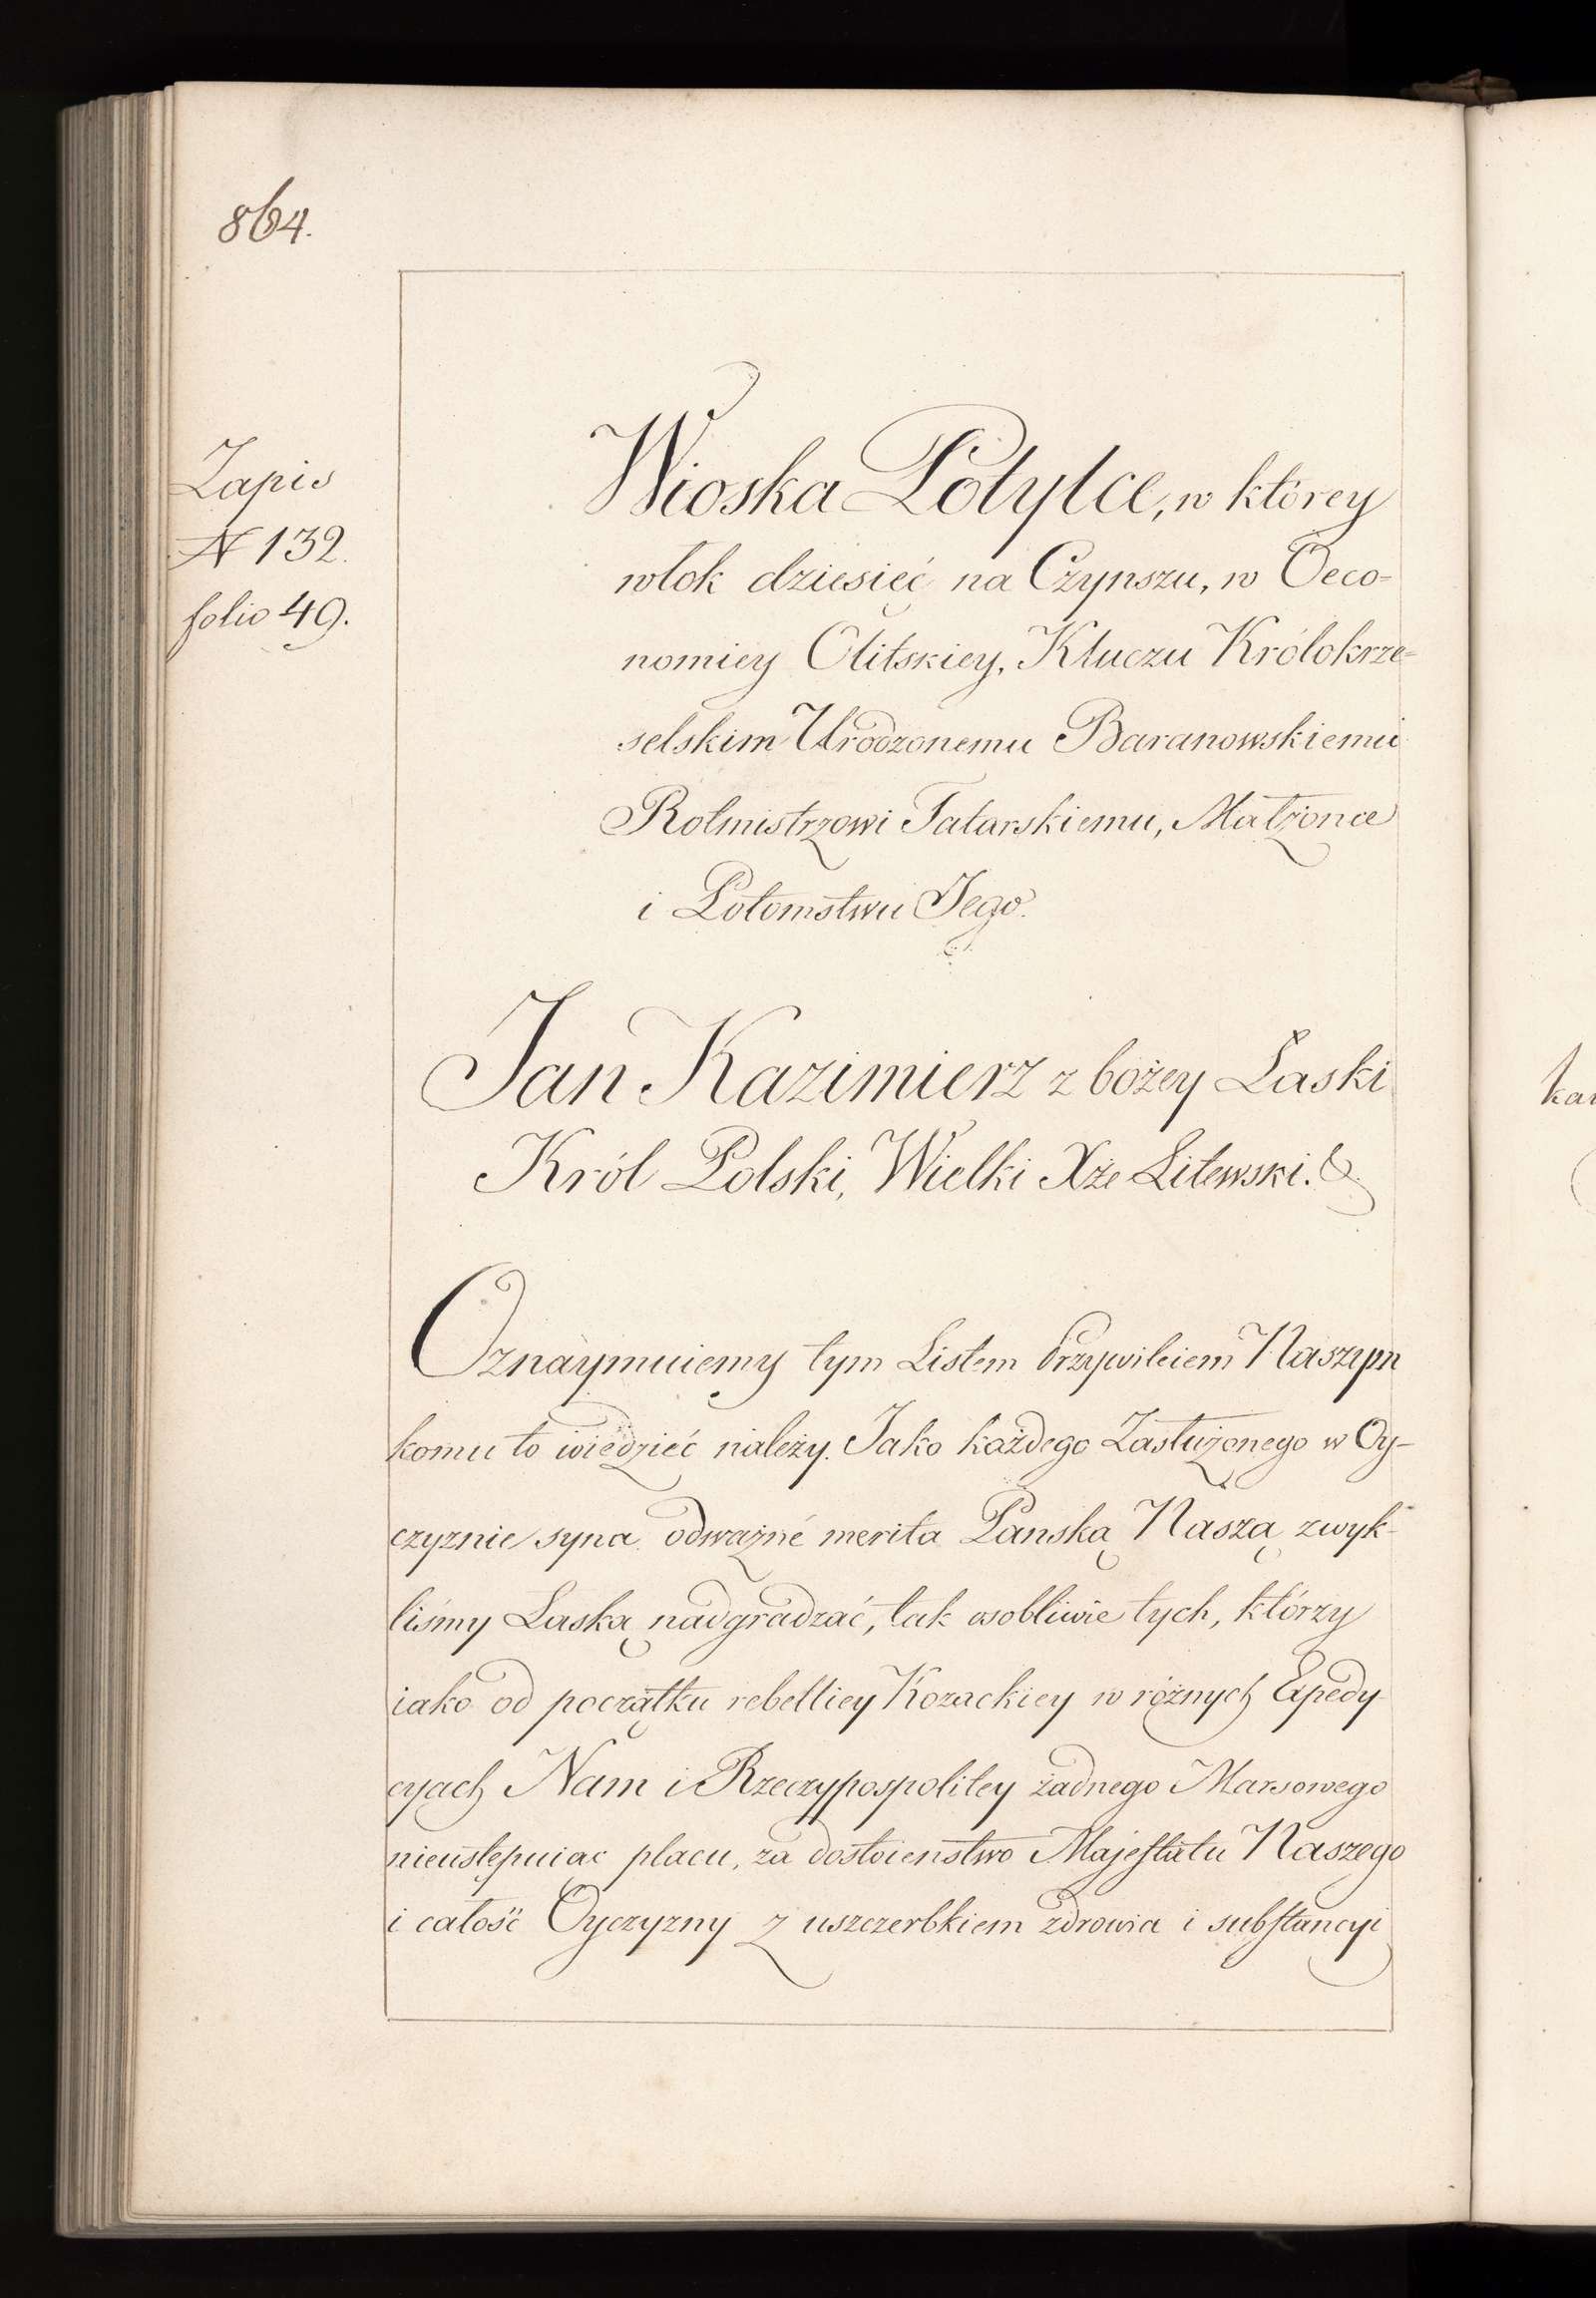 864.
Zapis
N 132.
folio 49.
Wioska Potylce, w którey
włok dziesięć na Czynszu, w Oeco=
nomiey Olitskiey, Kluczu Królokrze=
selskim Urodzonemu Baranowskiemu
Rotmistrzowi Tatarskiemu, Małżonce
i Potomstwu Jego.
Jan Kazimierz z bożey Łaski
Król Polski, Wielki Xże Litewski. &
Oznaymuiemy tym Listem Przywileiem Naszym
komu to wiedzieć należy. Jako każdego Zasłużonego w Oy-
czyznie syna odważné merita Panską Naszą zwyk-
liśmy Łaską nadgradzać, tak osobliwie tych, którzy
iako od początku rebelliey Kozackiey w różnych Expedy-
cyach Nam i Rzeczypospolitey żadnego Marsowego
nieustępuiąc placu, za dostoienstwo Majestatu Naszego
i całość Oyczyzny z uszczerbkiem zdrowia i substancyi